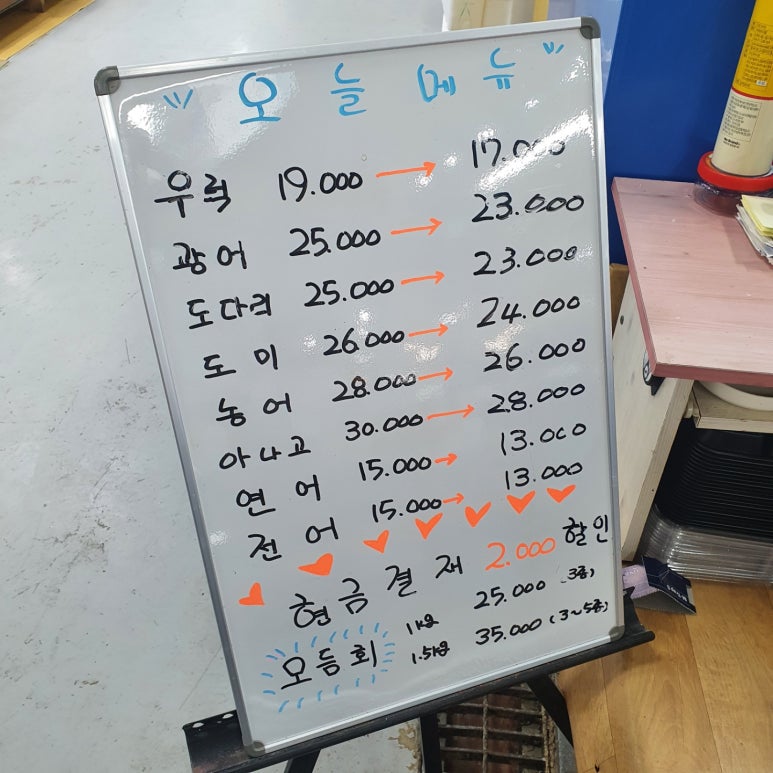 오늘메뉴
우럭 19.000 → 17.000
광어 25.000 → 23.000
도다리 25.000 → 23.000
도미 26.000 → 24.000
농어 28.000 → 26.000
아나고 30.000 → 28.000
연어 15.000 → 13.000
전어 15.000 → 13.000
현금결재 2.000 할인
오듬회 1kg 25.000 (3종)
1.5kg 35.000 (3~5종)